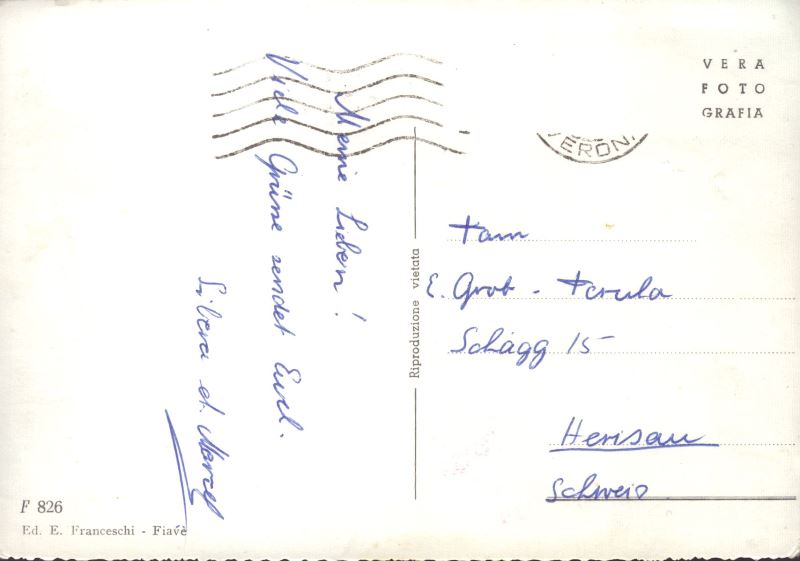 Meine Lieben!
Viele Grüsse sendet Euch.
Silvera et. Marcel
VERA
FOTO
GRAFIA
ERON
Riproduzione vietata
Fam
E. Grob - Ferula
Schägg 15
Herisau
Schweiz
F 826
Ed. E. Franceschi - Fiavè